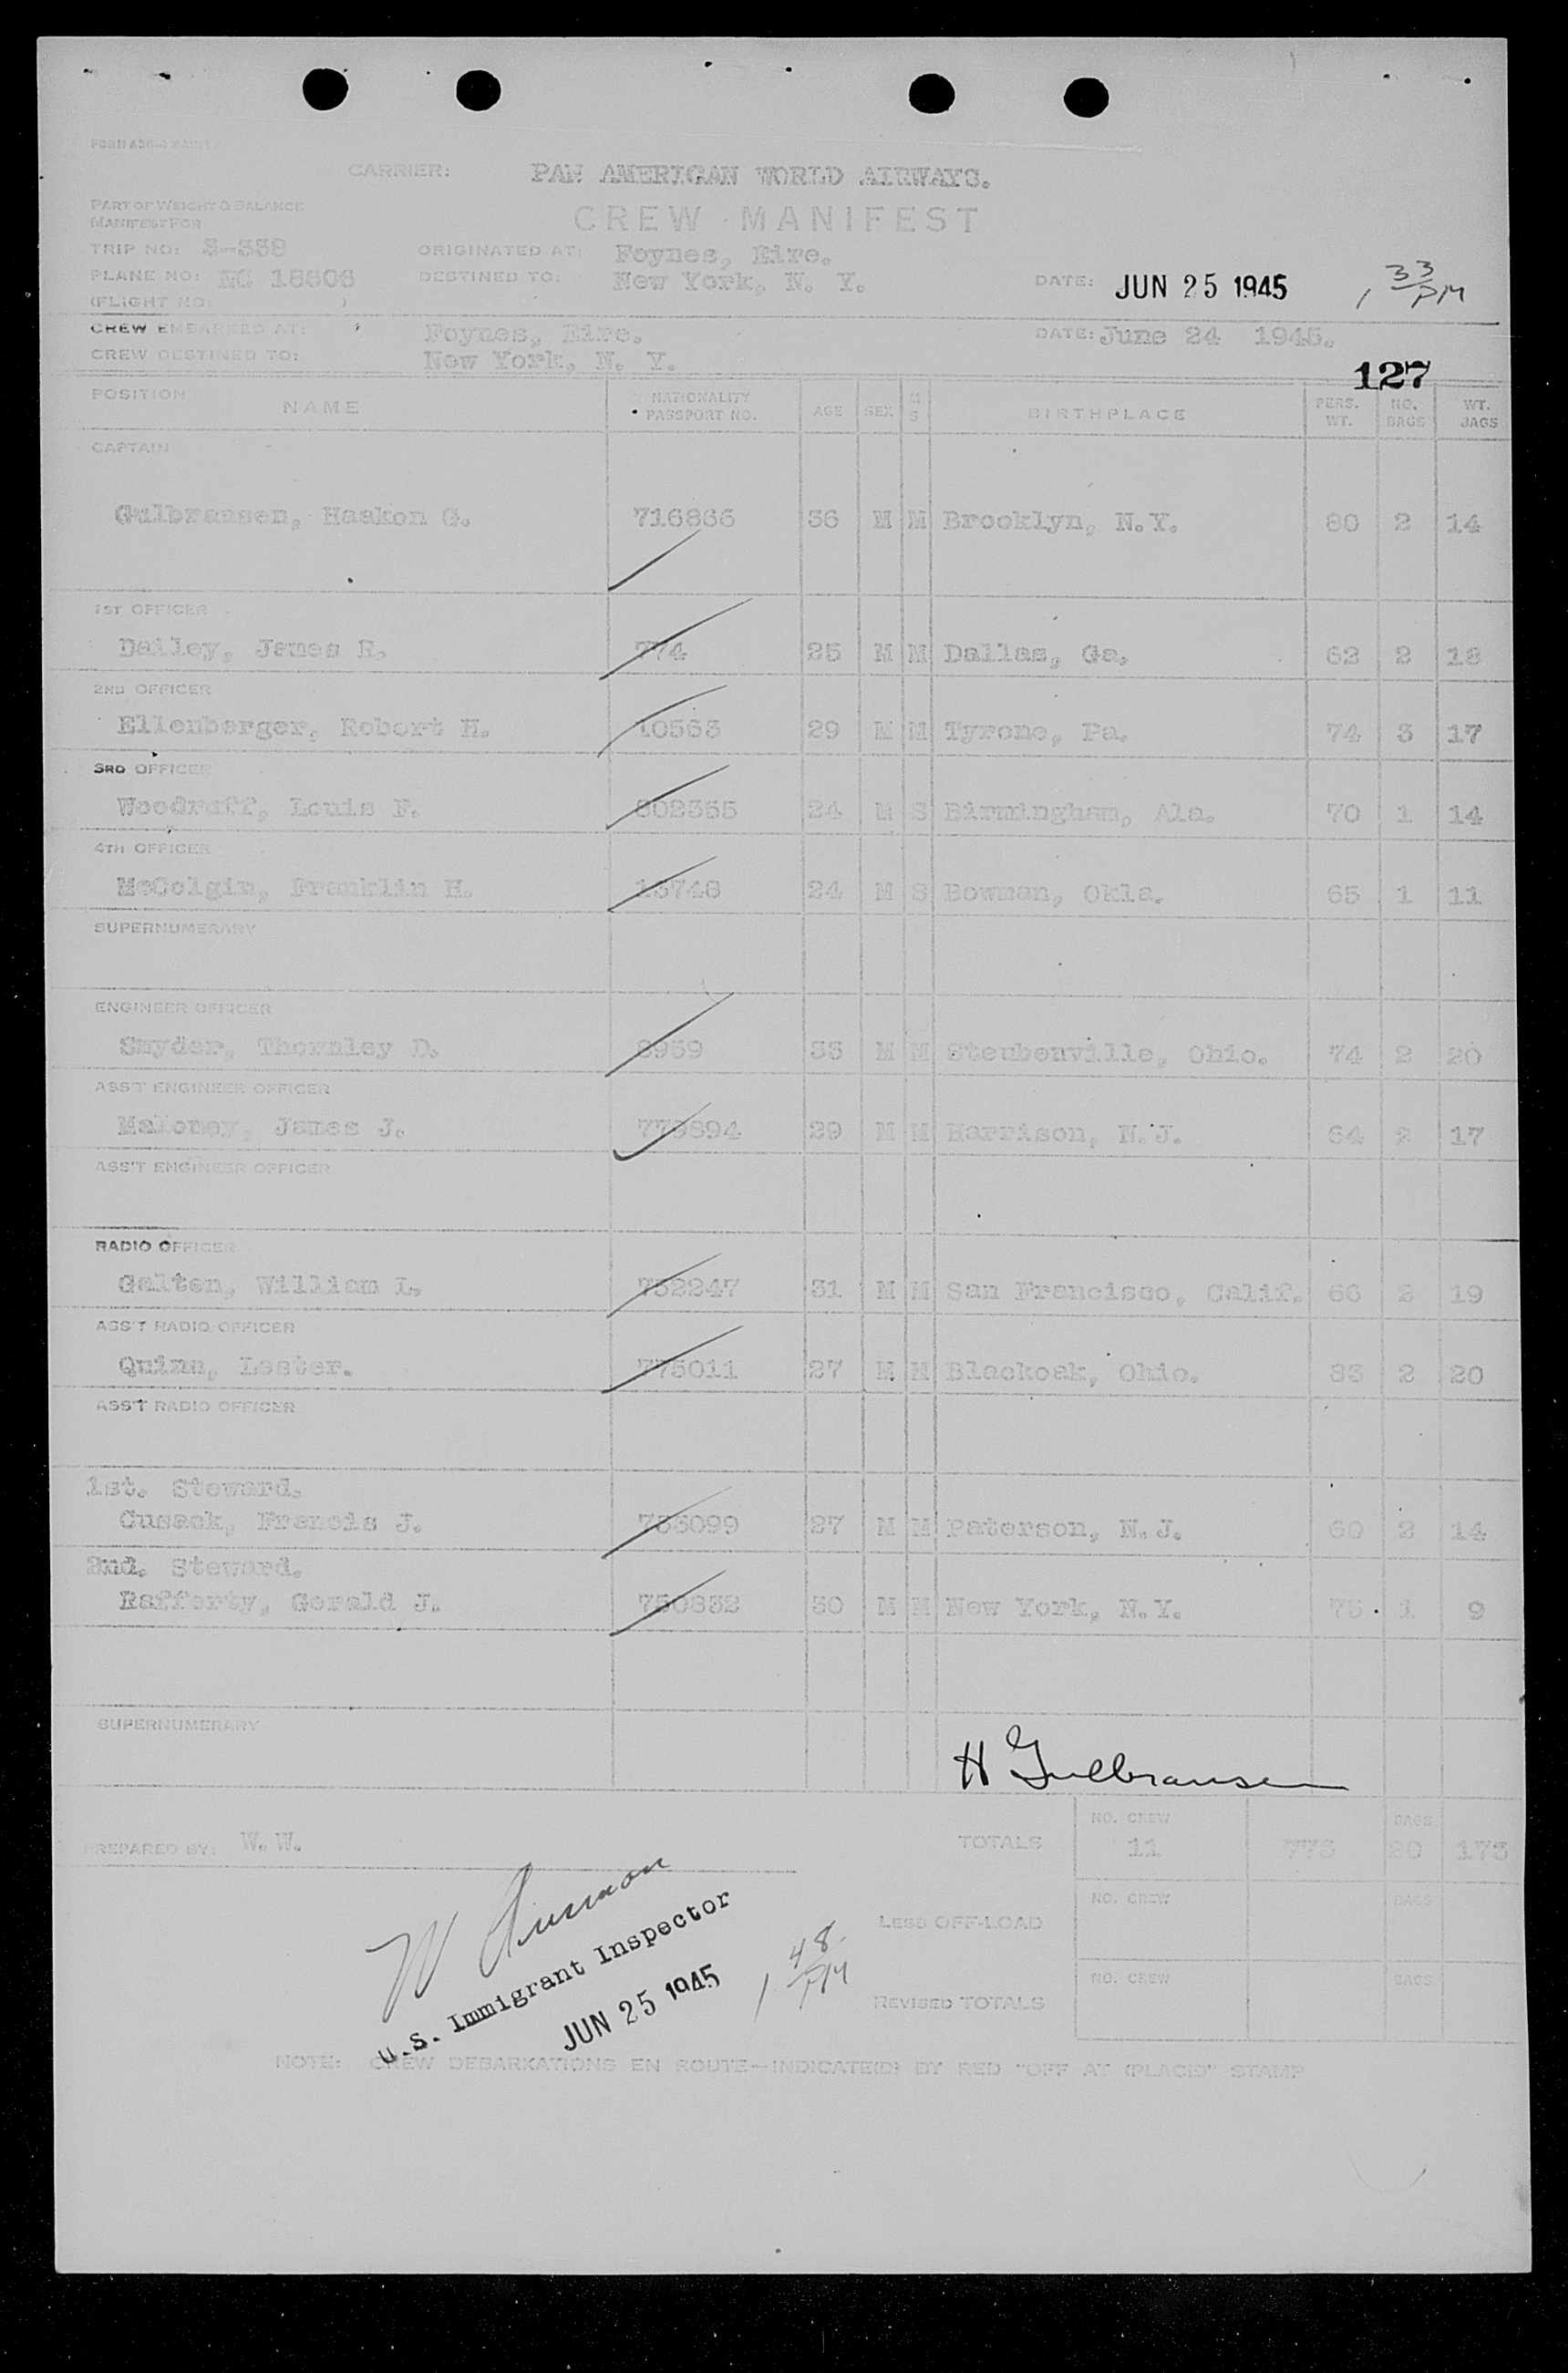 CARRIER: PAN AMERICAN WORLD AIRWAYS.
PART OF WEIGHT & BALANCE
MANIFEST FOR
CREW MANIFEST
TRIP NO: ORIGINATED AT: Foynes, Eire.
PLANE NO: NC 18606 DESTINED TO: New York, N. Y. DATE: JUN 25 1945 1 33 PM
(FLIGHT NO: )
CREW EMBARKED AT: Foynes, Eire. DATE: June 24 1945.
CREW DESTINED TO: New York, N. Y.
127
POSITION NAME NATIONALITY PASSPORT NO. AGE SEX M S BIRTHPLACE PERS. WT. NO. BAGS WT. BAGS
CAPTAIN
Gulbransen, Haakon G. 716866 36 M M Brooklyn, N.Y. 80 2 14
1ST OFFICER
Dailey, James R. 774 25 M M Dallas, Ga. 62 2 18
2ND OFFICER
Ellenberger, Robert H. 10563 29 M M Tyrone, Pa. 74 3 17
3RD OFFICER
Woodruff, Louis F. 802355 24 M S Birmingham, Ala. 70 1 14
4TH OFFICER
McColgin, Franklin H. 13748 24 M S Bowman, Okla. 65 1 11
SUPERNUMERARY
ENGINEER OFFICER
Snyder, Thornley D. 8959 33 M M Steubenville, Ohio. 74 2 20
ASS'T ENGINEER OFFICER
Maloney, James J. 779894 29 M M Harrison, N.J. 64 2 17
ASS'T ENGINEER OFFICER
RADIO OFFICER
Galten, William L. 752247 31 M M San Francisco, Calif. 66 2 19
ASS'T RADIO OFFICER
Quinn, Lester. 775011 27 M M Blackoak, Ohio. 83 2 20
ASS'T RADIO OFFICER
1st. Steward.
Cusack, Francis J. 786099 27 M M Paterson, N.J. 60 2 14
2nd. Steward.
Rafferty, Gerald J. 750832 30 M M New York, N.Y. 75 1 9
SUPERNUMERARY
H Gulbransen
PREPARED BY: W. W. TOTALS NO. CREW 11 773 BAGS 20 173
LESS OFF-LOAD NO. CREW BAGS
U.S. Immigrant Inspector
JUN 25 1945 1 48 PM
REVISED TOTALS NO. CREW BAGS
NOTE: CREW DEBARKATIONS EN ROUTE—INDICATE(D) BY RED "OFF AT (PLACE)" STAMP